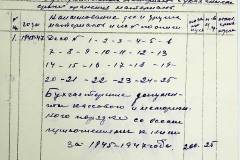 сроки хранения материалов
годы Наименование дел и других
материалов и их
1. 1945-47 Дело № 1-2-3-4-5-6
7-8-9-10-11-12-13
14-15-16-17-18-19
20-21-22-23-24-25
Бухгалтерские докумен-
ты кассового и мемориаль-
ного порядка со всеми
приложениями к ним
за 1945-1947 годы. 25